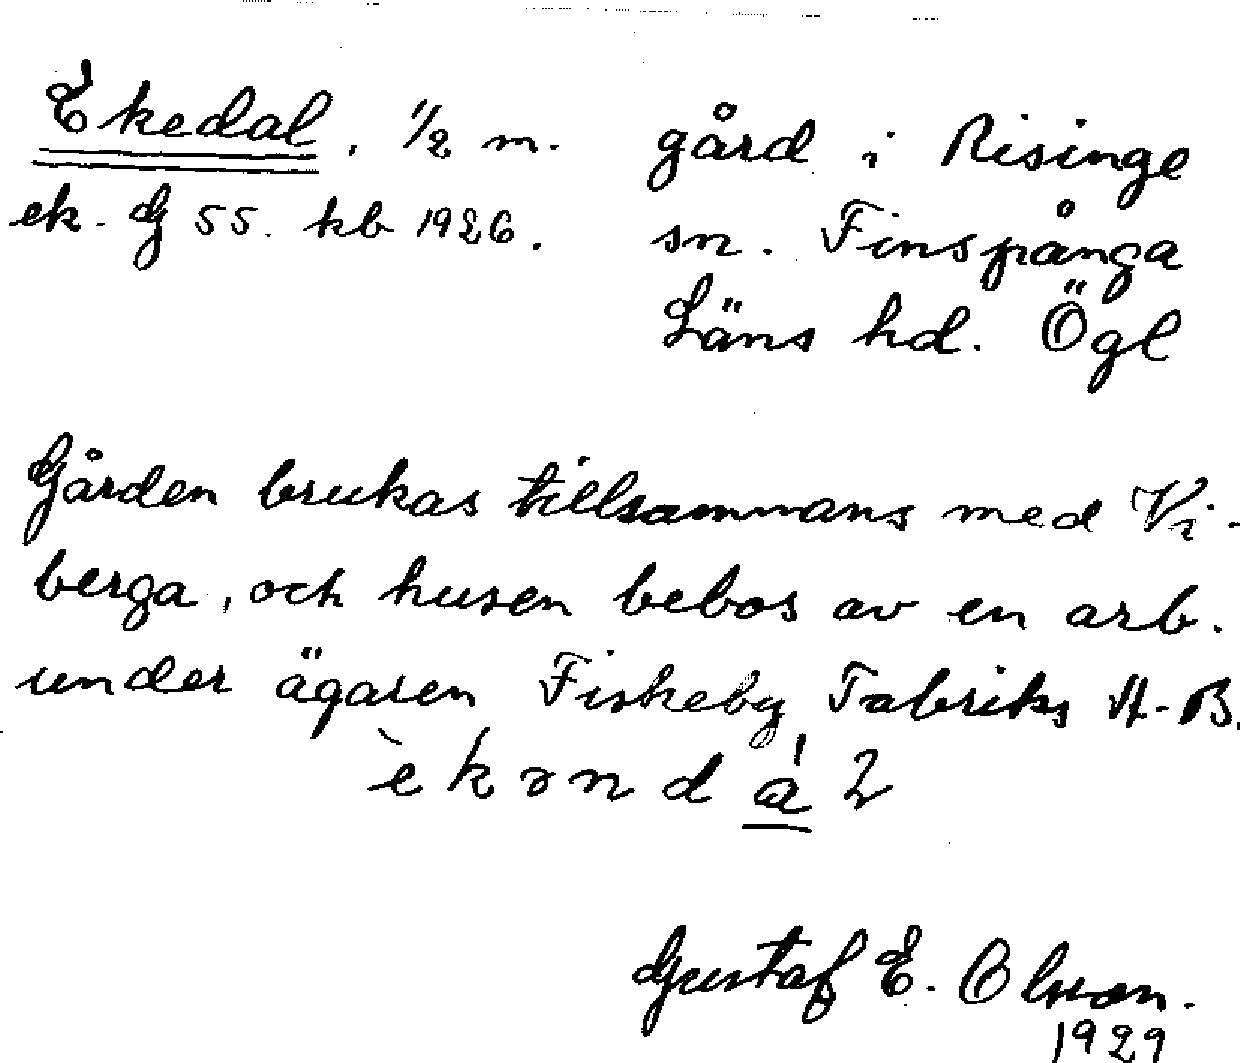 Ekedal, 1/2 m. gård i Risinge
ek. G 55. kb 1926. sn. Finspånga
Läns hd. Ögl
Gården brukas tillsammans med Vi-
berga, och husen bebos av en arb.
under ägaren Fiskeby Fabriks A-B.
è k ə n d á l
Gustaf E. Olsson.
1929